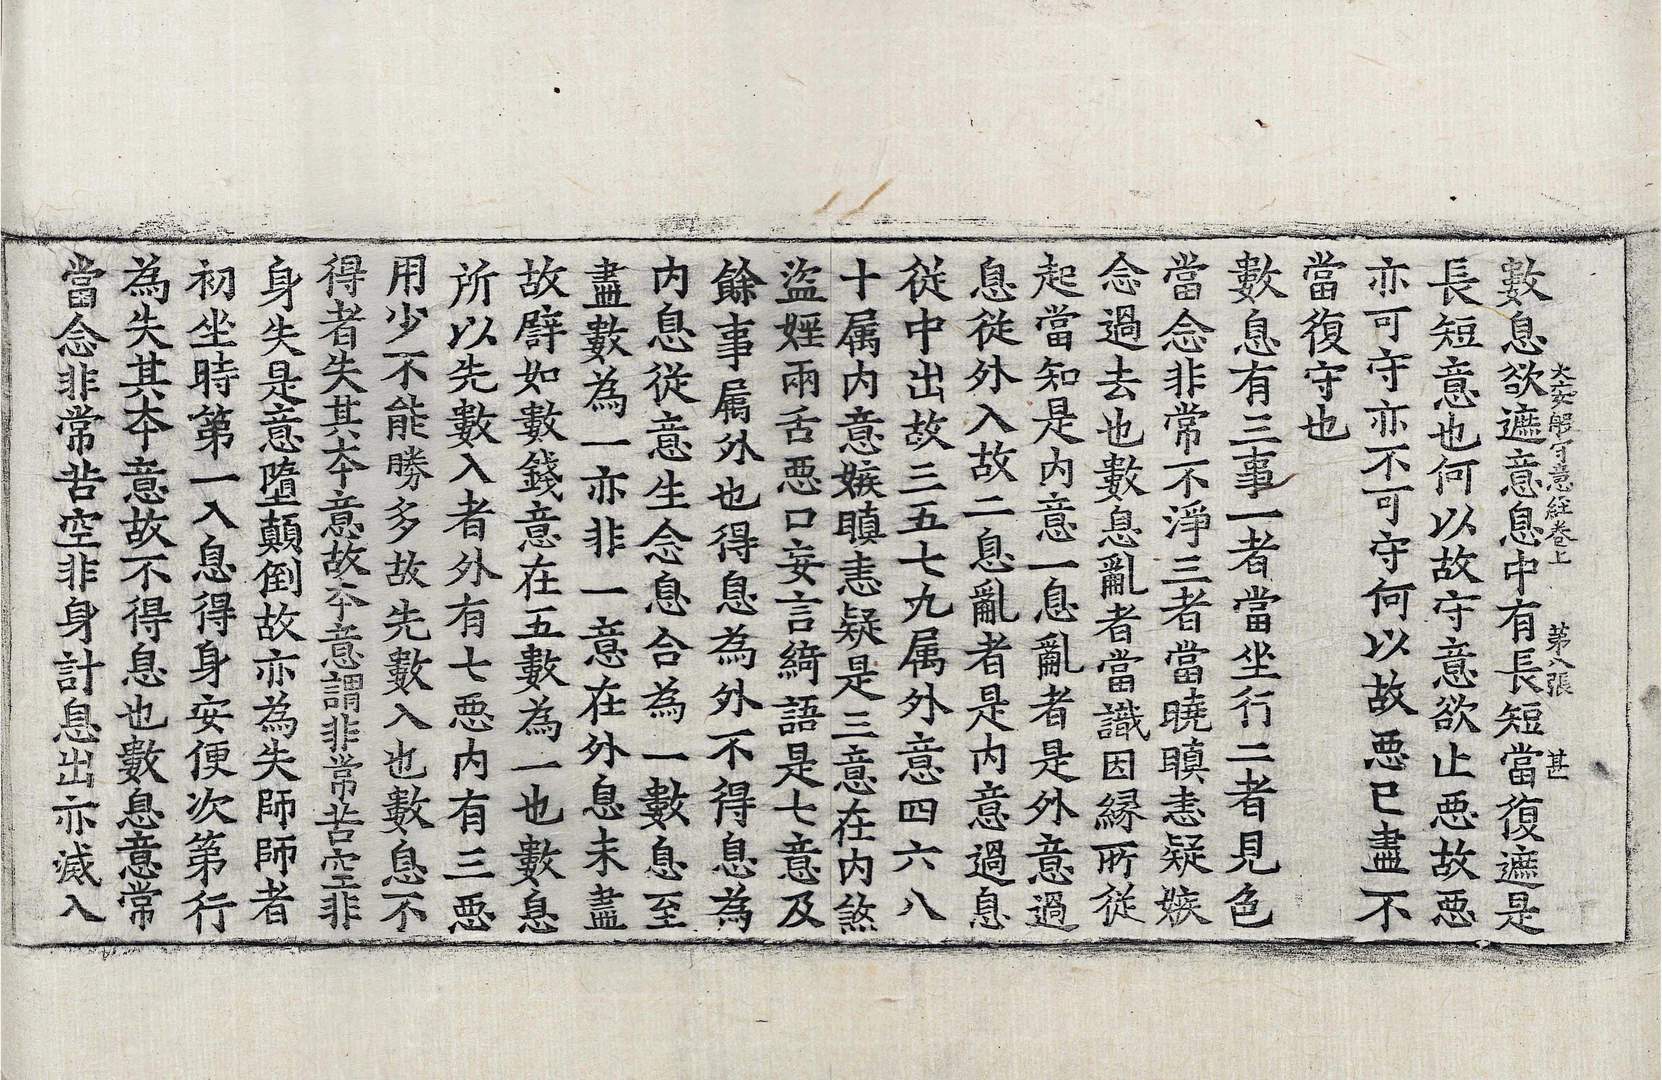 大安般守意経卷上 第八張 甚
數息欲遮意息中有長短當復遮是
長短意也何以故守意欲止悪故悪
亦可守亦不可守何以故悪已盡不
當復守也
數息有三事一者當坐行二者見色
當念非常不淨三者當曉瞋恚疑嫉
念過去也數息亂者當識因緣所從
起當知是内意一息亂者是外意過
息從外入故二息亂者是内意過息
從中出故三五七九属外意四六八
十属内意嫉瞋恚疑是三意在内煞
盜婬兩舌悪口妄言綺語是七意及
餘事属外也得息為外不得息為
内息從意生念息合為一數息至
盡數為一亦非一意在外息未盡
故譬如數錢意在五數為一也數息
所以先數入者外有七悪内有三悪
用少不能勝多故先數入也數息不
得者失其夲意故夲意謂非常苦空非
身失是意墮顛倒故亦為失師師者
初坐時第一入息得身安便次第行
為失其夲意故不得息也數息意常
當念非常苦空非身計息出亦滅入